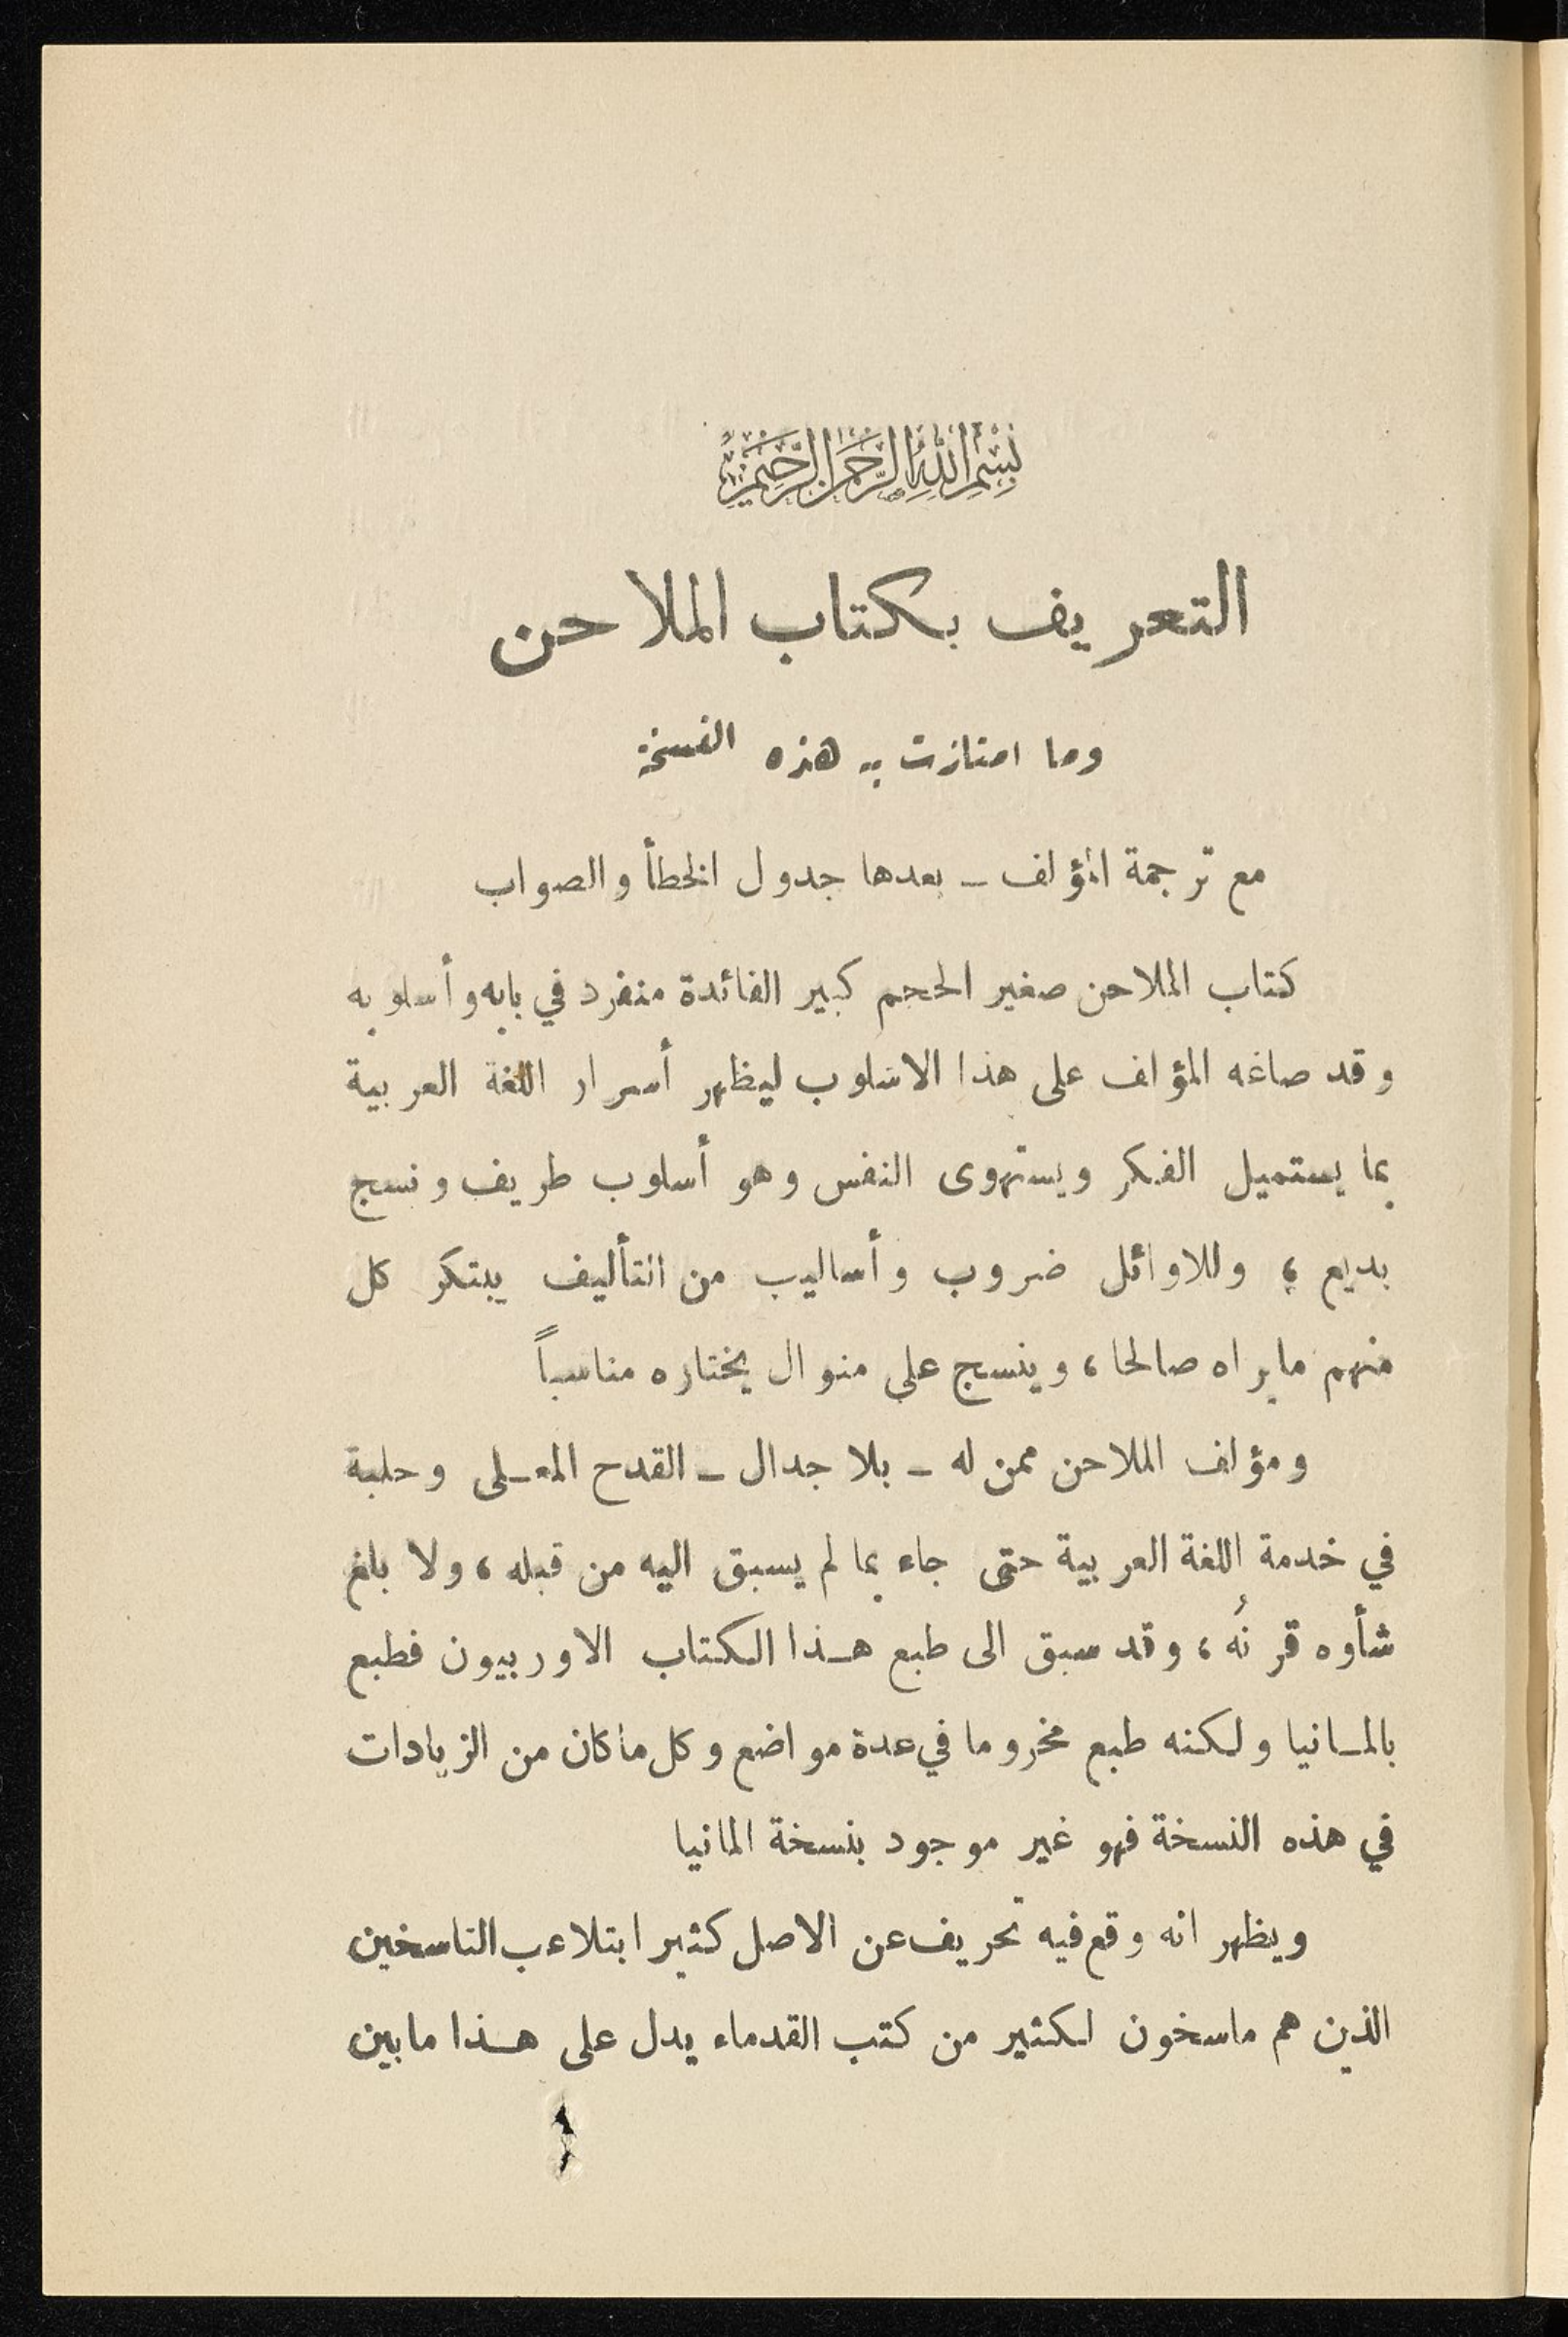 بسم الله الرحمن الرحيم
التعريف بكتاب الملاحن
وما امتازت به هذه النسخة
مع ترجمة المؤلف ـ بعدها جدول الخطأ والصواب
كتاب الملاحن صغير الحجم كبير الفائدة منفرد في بابه وأسلوبه
وقد صاغه المؤلف على هذا الاسلوب ليظهر أسرار اللغة العربية
بما يستميل الفكر ويستهوى النفس وهو أسلوب طريف ونسج
بديع ، وللاوائل ضروب وأساليب من التأليف يبتكر كل
منهم مايراه صالحا ، وينسج على منوال يختاره مناسباً
ومؤلف الملاحن ممن له ـ بلا جدال ـ القدح المعـلى وحلبة
في خدمة اللغة العربية حتى جاء بما لم يسبق اليه من قبله ، ولا بلغ
شأوه قرنُه ، وقد سبق الى طبع هـذا الكتاب الاوربيون فطبع
بالمـانيا ولكنه طبع مخروما في عدة مواضع وكل ماكان من الزيادات
في هذه النسخة فهو غير موجود بنسخة المانيا
ويظهر انه وقع فيه تحريف عن الاصل كثيرا بتلاعب الناسخين
الذين هم ماسخون لكثير من كتب القدماء يدل على هـذا مابين